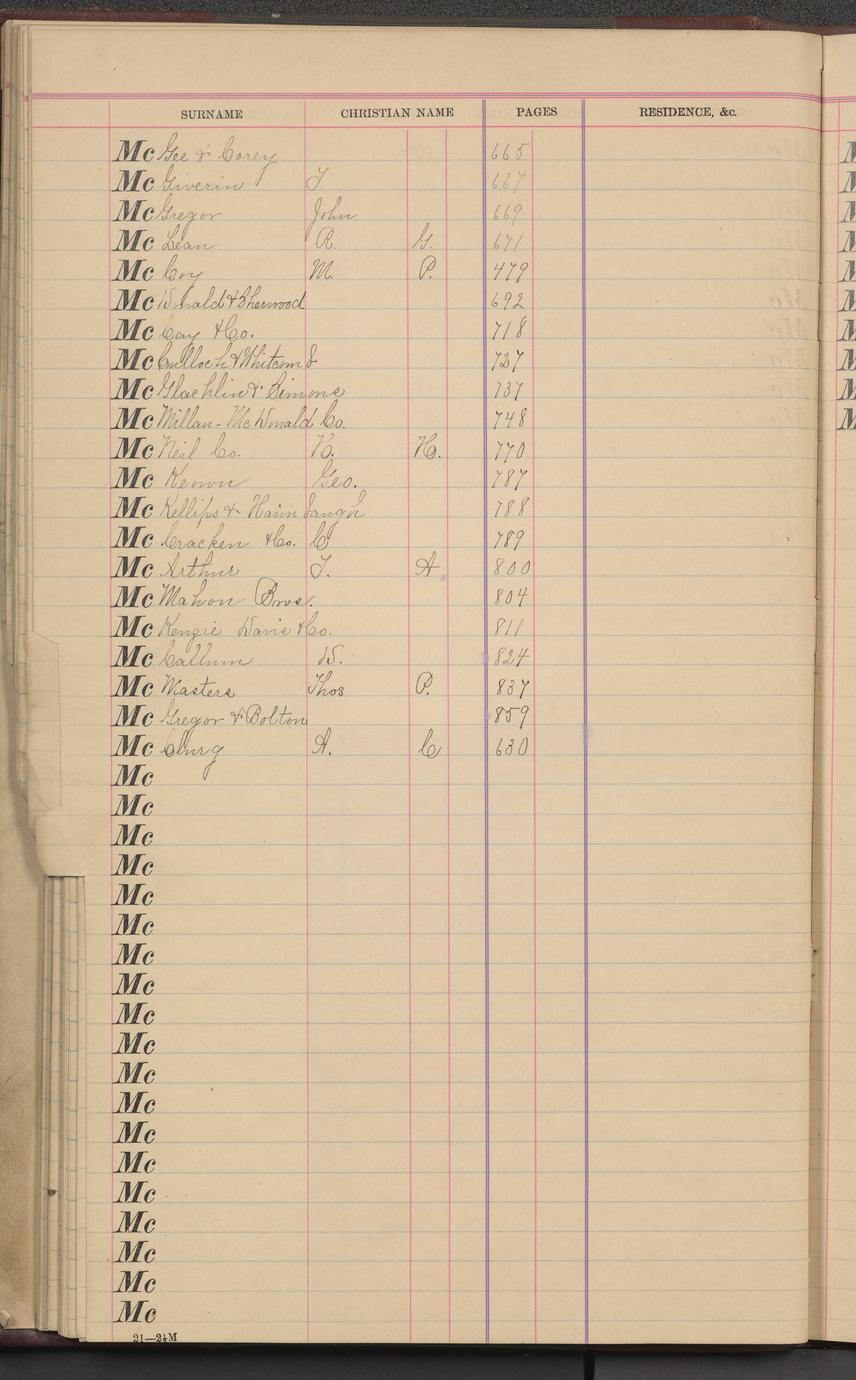 SURNAME CHRISTIAN NAME PAGES RESIDENCE, &c.
Mc Gee & Corey 665
Mc Giverin T. 667
Mc Gregor John 669
Mc Lean R. G. 671
Mc Coy M. P. 479
Mc Donald & Sherwood 692
Mc Cay & Co. 718
Mc Culloch & Whitcomb 727
Mc Glachlin & Simons 737
Mc Millan - McDonald Co. 748
Mc Neil Co. H. 770
Mc Keown Geo. 787
Mc Kellips & Haimbaugh 788
Mc Cracken & Co. C 789
Mc Arthur T. A 800
Mc Mahon Bros. 804
Mc Kenzie Davis & Co. 811
Mc Callum D. 824
Mc Masters Thos P. 837
Mc Gregor & Bolton 859
Mc Clurg A. C 630
Mc
Mc
Mc
Mc
Mc
Mc
Mc
Mc
Mc
Mc
Mc
Mc
Mc
Mc
Mc
Mc
Mc
Mc
Mc
21—2½M